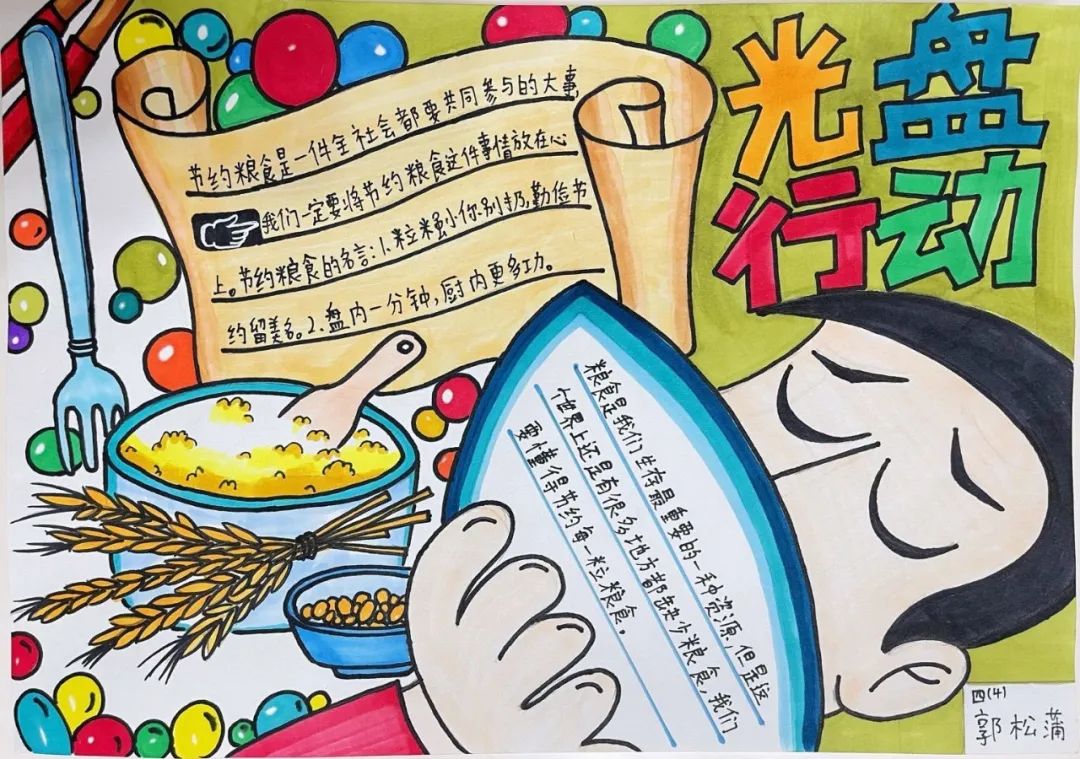 光盘
行动
节约粮食是一件全社会都要共同参与的大事
我们一定要将节约粮食这件事情放在心
上。节约粮食的名言:1.粒米虽小你别扔,勤俭节
约留美名。2.盘内一分钟,厨内更多功。
粮食是我们生存最重要的一种资源,但是这
世界上还是有很多地方都缺少粮食,我们
要懂得节约每一粒粮食。
四(4)
郭松蒲